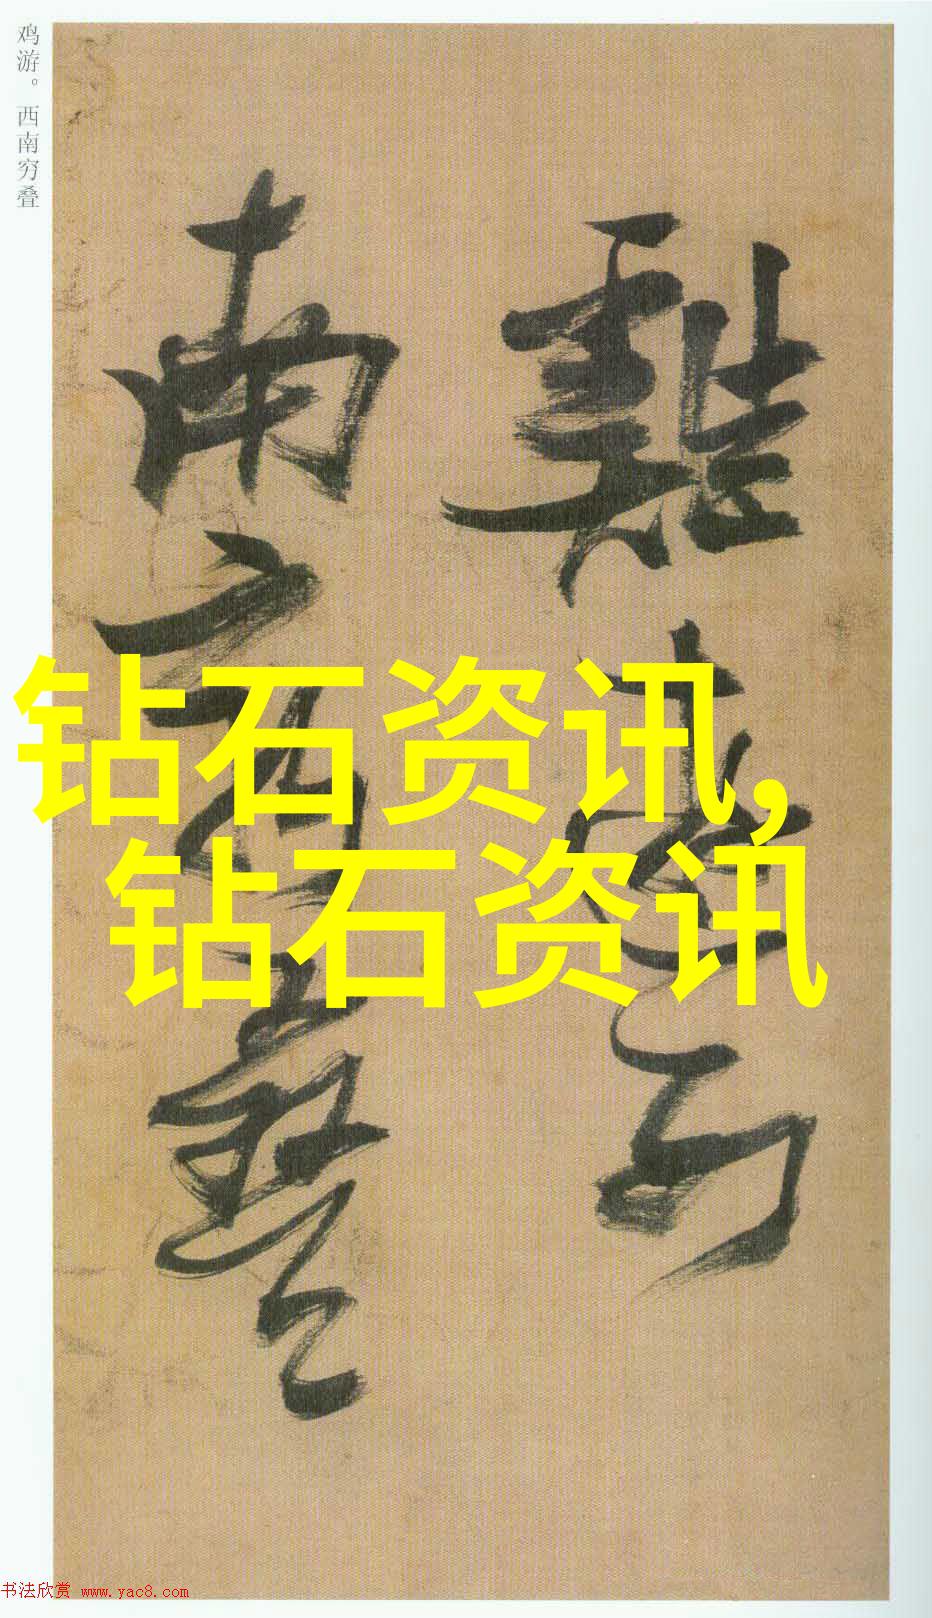 鸡游。西南穷叠
雞
南
疊
钻石资讯,
钻石资讯
书法欣赏 www.yac8.com